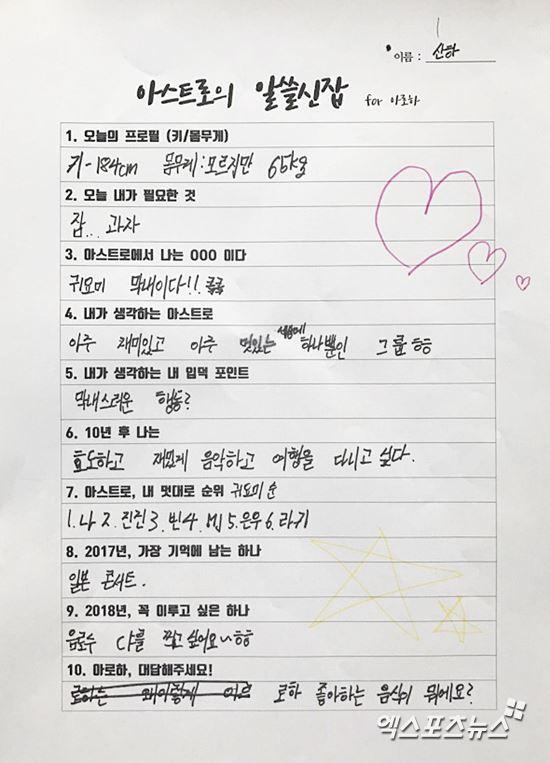 이름 : 산하
아스트로의 알쓸신잡 for 아로하
1. 오늘의 프로필 (키/몸무게)
키-184cm 몸무게:모르지만 65kg요
2. 오늘 내가 필요한 것
잠... 과자
3. 아스트로에서 나는 OOO 이다
귀요미 막내이다!! 쿄쿄
4. 내가 생각하는 아스트로
아주 재미있고 아주 멋있는 세상에 하나뿐인 그룹ㅎㅎ
5. 내가 생각하는 내 입덕 포인트
막내스러운 행동?
6. 10년 후 나는
효도하고 재밌게 음악하고 여행을 다니고 싶다.
7. 아스트로, 내 멋대로 순위 귀요미 순
1.나 2.진진 3.빈 4.MJ 5.은우 6.라키
8. 2017년, 가장 기억에 남는 하나
일본 콘서트.
9. 2018년, 꼭 이루고 싶은 하나
음료수 CF를 찍고 싶어요~ㅎㅎ
10. 아로하, 대답해주세요!
로하는 왜이렇게 로하 좋아하는 음식이 뭐에요?
엑스포츠뉴스